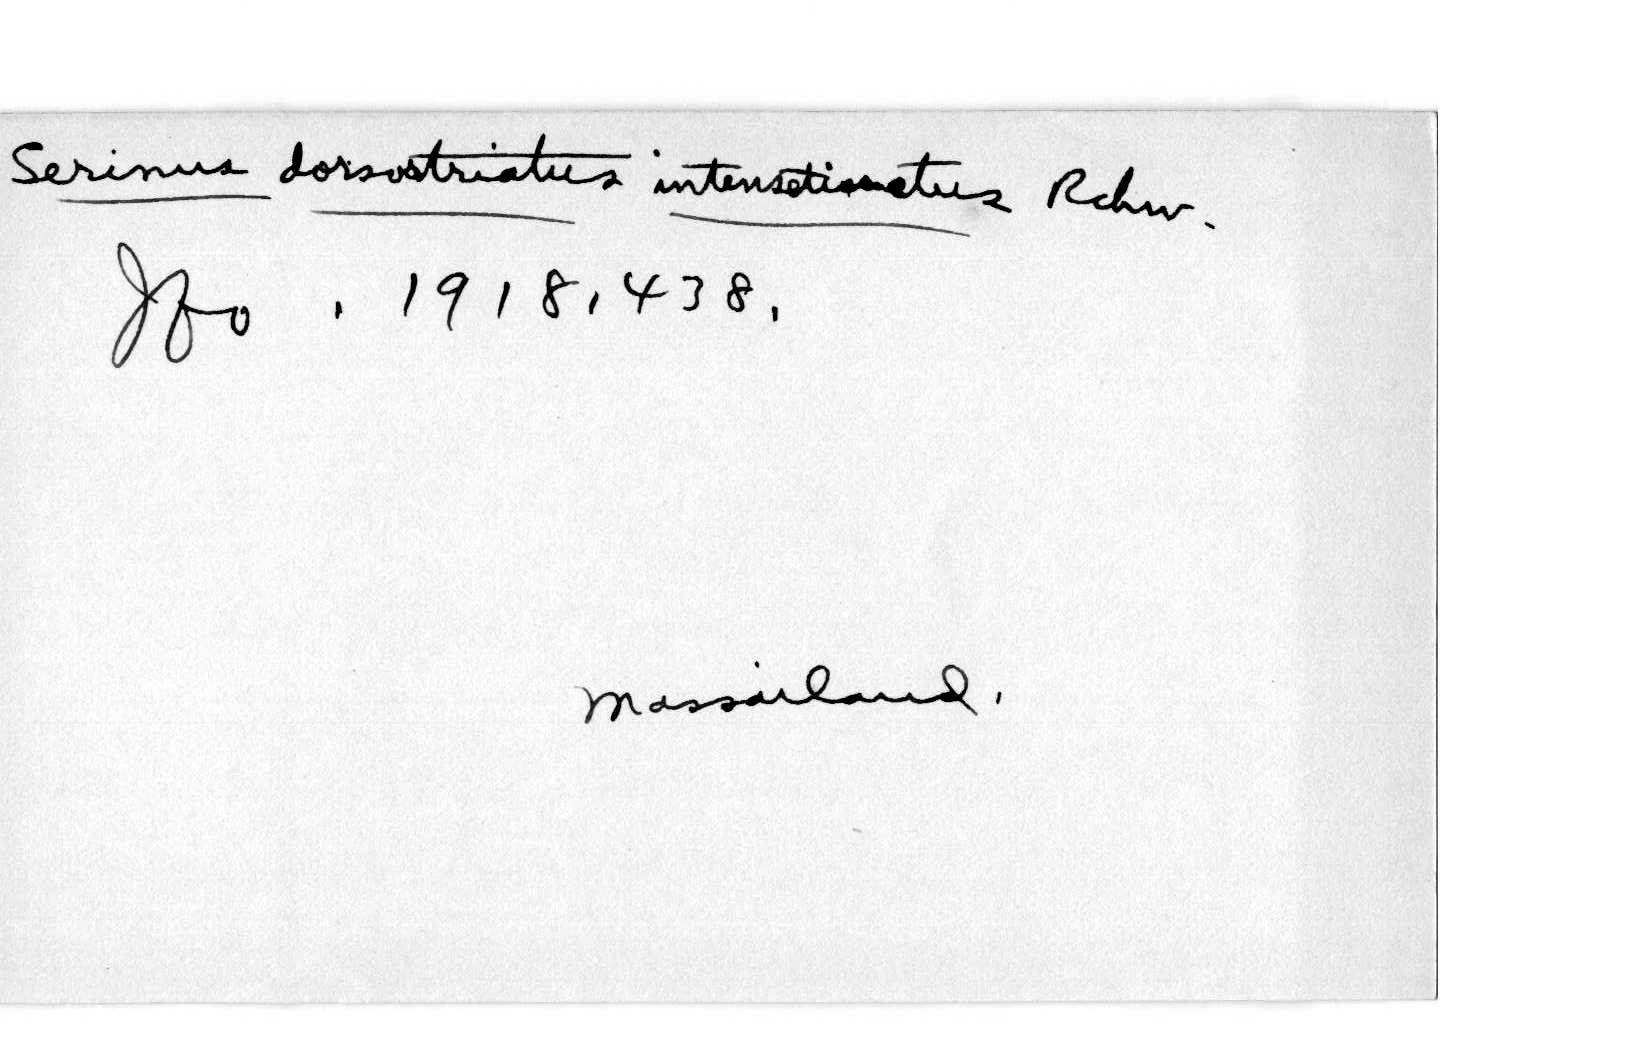 Serinus dorsostriatus intensetinctus Rchw.
Jfo, 1918, 438,
Massailand.